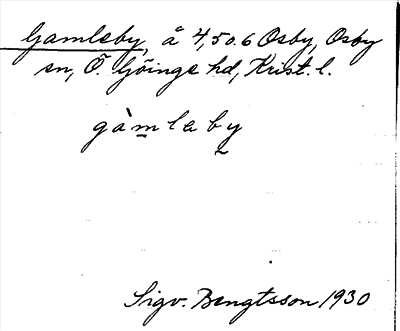 Gamleby, å 4,5 o. 6 Osby, Osby
sn, Ö. Göinge hd, Krist. l.
gàmlaby
Sigv. Bengtsson 1930